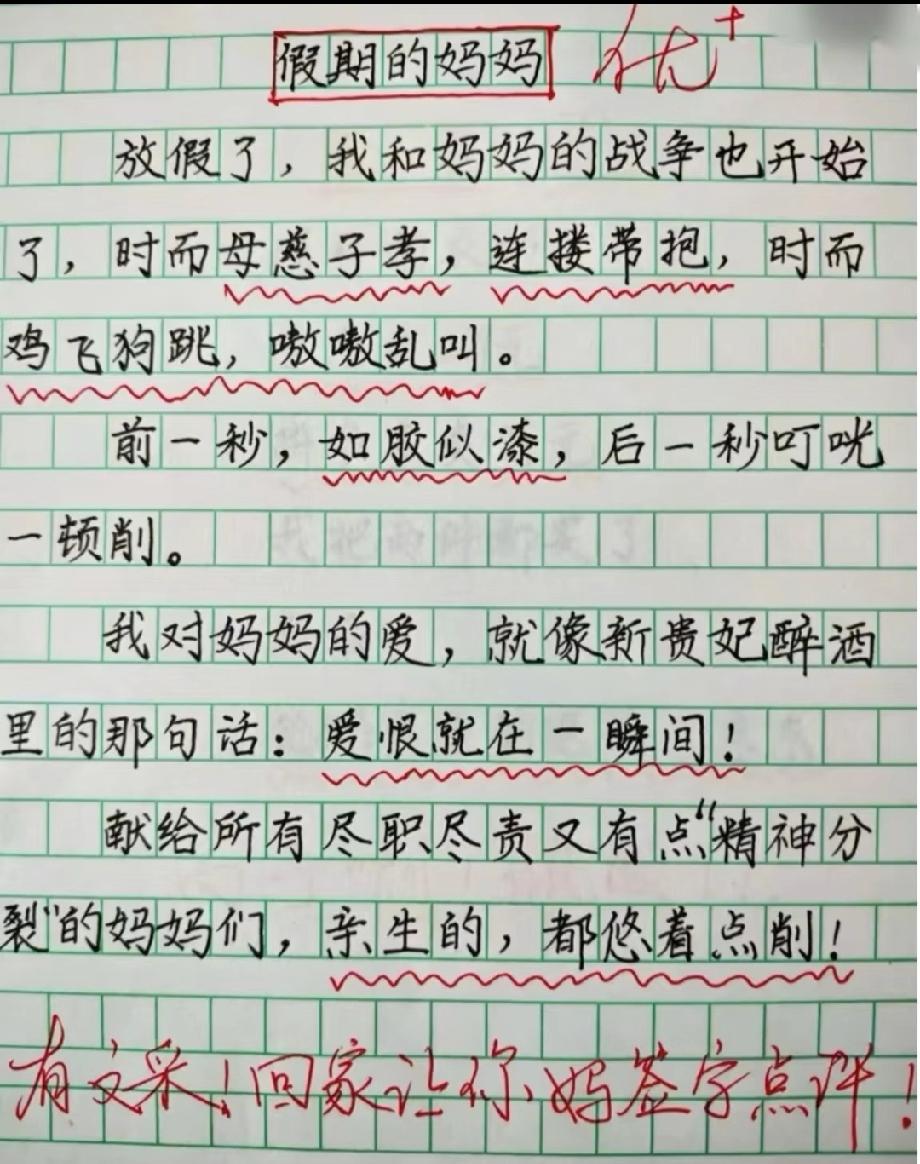 假期的妈妈 优+
放假了，我和妈妈的战争也开始
了，时而母慈子孝，连搂带抱，时而
鸡飞狗跳，嗷嗷乱叫。
前一秒，如胶似漆，后一秒叮咣
一顿削。
我对妈妈的爱，就像新贵妃醉酒
里的那句话：爱恨就在一瞬间！
献给所有尽职尽责又有点“精神分
裂”的妈妈们，亲生的，都悠着点削！
有文采！回家让你妈签字点评！